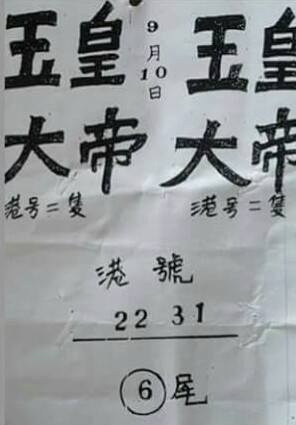 玉皇
大帝
港号二隻
9月10日
玉皇
大帝
港号二隻
港號
22 31
6尾